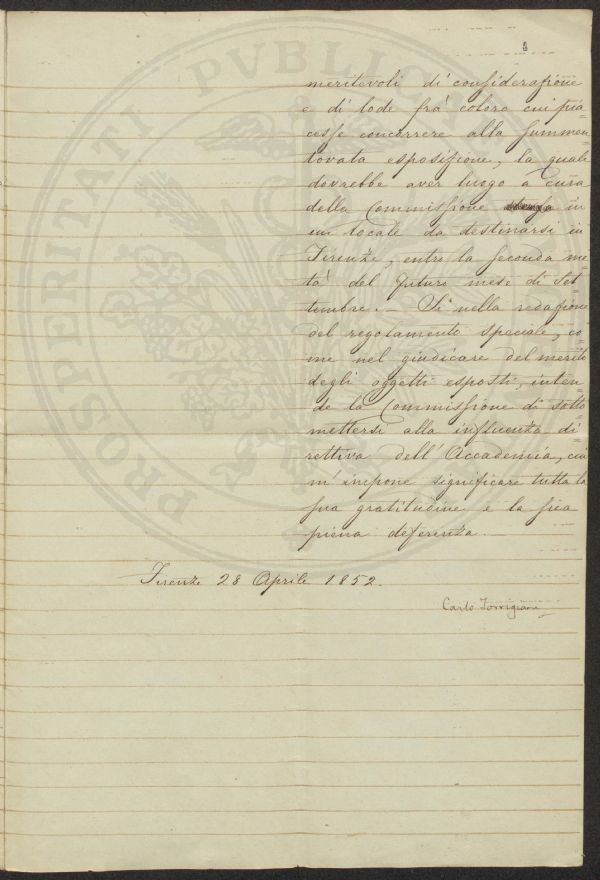 meritevoli di considerazione
e di lode frà coloro cui pia=
cesse concorrere alla summen=
tovata esposizione, la quale
dovrebbe aver luogo a cura
della Commissione in
un locale da destinarsi in
Firenze, entro la seconda me=
tà del futuro mese di Set=
tembre. — Sì nella redazione
del regolamento speciale, co=
me nel giudicare del merito
degli oggetti esposti, inten=
de la Commissione di sotto=
mettersi alla influenza di=
rettiva dell'Accademia, cui
m'impone significare tutta la
sua gratitudine e la sua
piena deferenza. —
Firenze 28 Aprile 1852.
Carlo Torrigiani
PROSPERITATI PVBLICAE